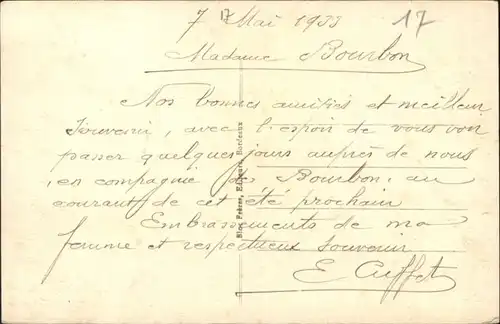 7 Mai 1933
17
Madame Bourbon
Nos bonnes amitiés et meilleur
souvenir, avec l'espoir de vous voir
passer quelques jours auprès de nous
en compagnie de Bourbon au
courant de cet été prochain
Embrassements de ma
femme et respectueux souvenir
Bloc Frères, Editeurs, Bordeaux